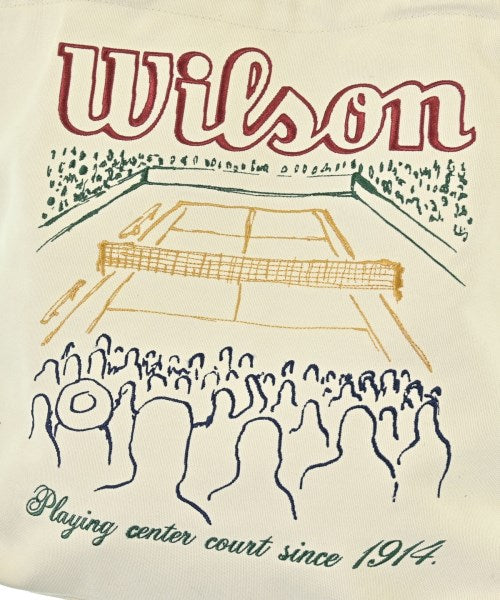 Wilson
Playing center court since 1914.